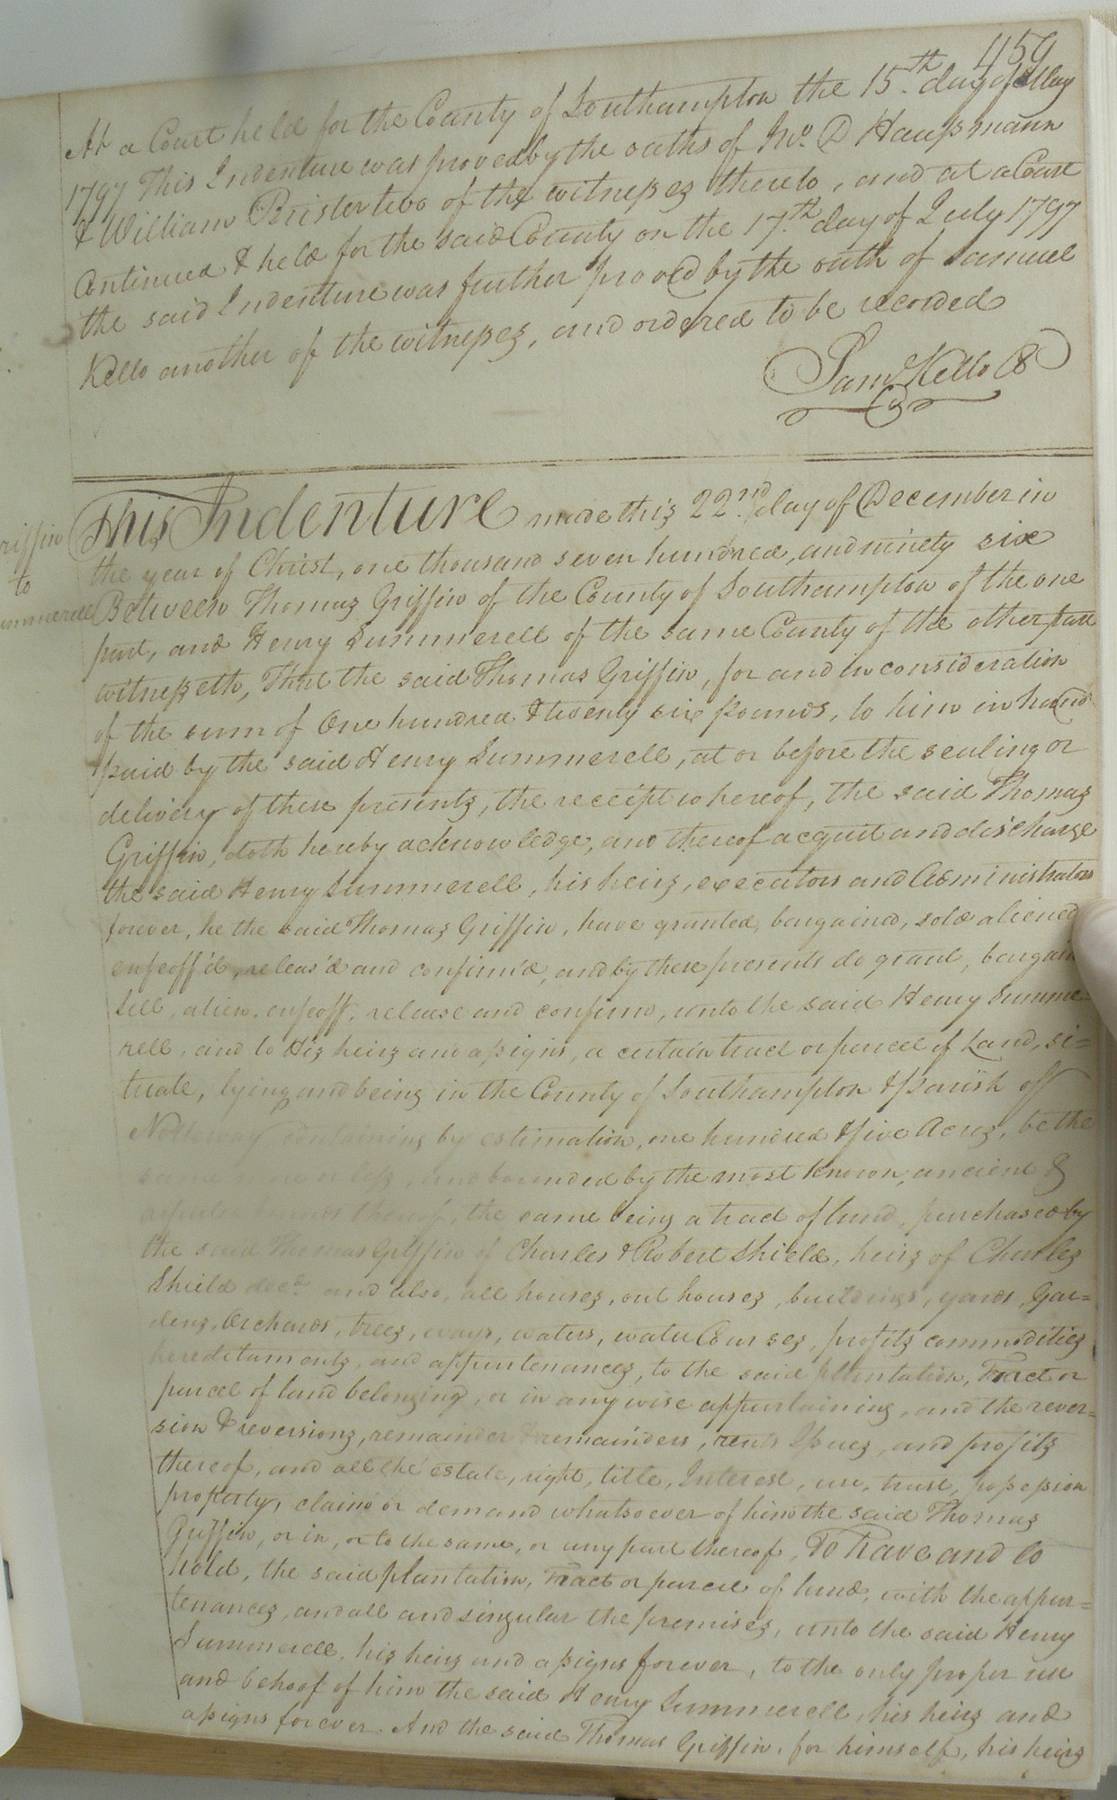 459
At a Court held for the County of Southampton the 15.th day of May
1797 This Indenture was proved by the oaths of Jno. D Haussmann
& William Brister two of the witnesses thereto, and at a Court
Continued & held for the said County on the 17.th day of July 1797
the said Indenture was further proved by the oath of Samuel
Kello another of the witnesses, and ordered to be recorded
Saml Kello C
This Indenture made this 22nd day of December in
the year of Christ, one thousand seven hundred, and ninety six
Griffin
to
Summerell
Between Thomas Griffin of the County of Southampton of the one
part, and Henry Summerell of the same County of the other part
witnesseth, That the said Thomas Griffin, for and in consideration
of the sum of One hundred & twenty six pounds, to him in hand
paid by the said Henry Summerell, at or before the sealing or
delivery of these presents, the receipt whereof, the said Thomas
Griffin, doth hereby acknowledge, and thereof acquit and discharge
the said Henry Summerell, his heirs, executors and Administrators
forever, he the said Thomas Griffin, have granted, bargained, sold aliened
enfeoff'd, releas'd and confirm'd, and by these presents do grant, bargain
sell, alien, enfeoff, release and confirm, unto the said Henry Summe=
rell, and to His heirs and assigns, a certain tract or parcel of Land, si=
tuate, lying and being in the County of Southampton & parish off
Nottoway containing by estimation, one hundred & five Acres, be the
same more or less, and bounded by the most known, ancient &
reputed bounds thereof, the same being a tract of land, purchased by
the said Thomas Griffin of Charles & Robert Shield, heirs of Charles
Shield decd. and also, all houses, out houses, buildings, yards, Gar=
dens, Orchards, trees, ways, waters, water Courses, profits commodities
hereditaments, and appurtenances, to the said plantation, Tract or
parcel of land belonging, or in any wise appurtaining, and the rever=
sion & reversions, remainder & remainders, rents Issues, and profits
thereof, and all the estate, right, title, Interest, use, trust, possession
property, claim or demand whatsoever of him the said Thomas
Griffin, or in, or to the same, or any part thereof, To have and to
hold, the said plantation, Tract or parcel of land, with the appur=
tenances, and all and singular the premises, unto the said Henry
Summerell, his heirs and assigns forever, to the only proper use
and behoof of him the said Henry Summerell, his heirs and
assigns forever. And the said Thomas Griffin, for himself, his heirs